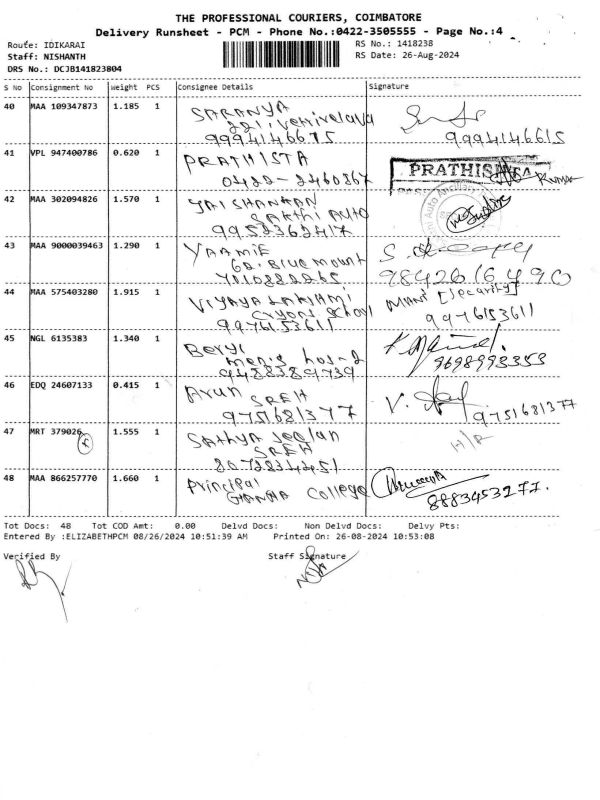 THE PROFESSIONAL COURIERS, COIMBATORE
Delivery Runsheet - PCM - Phone No.:0422-3505555 - Page No.:4
Route: IDIKARAI
RS No.: 1418238
Staff: NISHANTH
RS Date: 26-Aug-2024
DRS No.: DCJB141823804
S No Consignment No Weight PCS Consignee Details Signature
40 MAA 109347873 1.185 1 SARANYA
221, Vettivelava
9994146675
9994146615
41 VPL 947400786 0.620 1 PRATHISTA
0422-2460867
PRATHIS
KUMAR
42 MAA 302094826 1.570 1 JAI SHANKAR
SAKTHI AUTO
9952362417
43 MAA 9000039463 1.290 1 YAAMIE
62, Blue mount
7010822265
S.
9842616490
44 MAA 575403280 1.915 1 VIJAYA LAKSHMI
School
9976153611
MANI [Security]
9976153611
45 NGL 6135383 1.340 1 Beryl
mens hos-2
9488389739
9698993353
46 EDQ 24607133 0.415 1 Arun
SREH
9751681377
V.
9751681377
47 MRT 379026 1.555 1 Sathya Seelan
SREH
8072834451
H/R
48 MAA 866257770 1.660 1 Principal
College
8883453277.
Tot Docs: 48 Tot COD Amt: 0.00 Delvd Docs: Non Delvd Docs: Delvy Pts:
Entered By :ELIZABETHPCM 08/26/2024 10:51:39 AM Printed On: 26-08-2024 10:53:08
Verified By Staff Signature